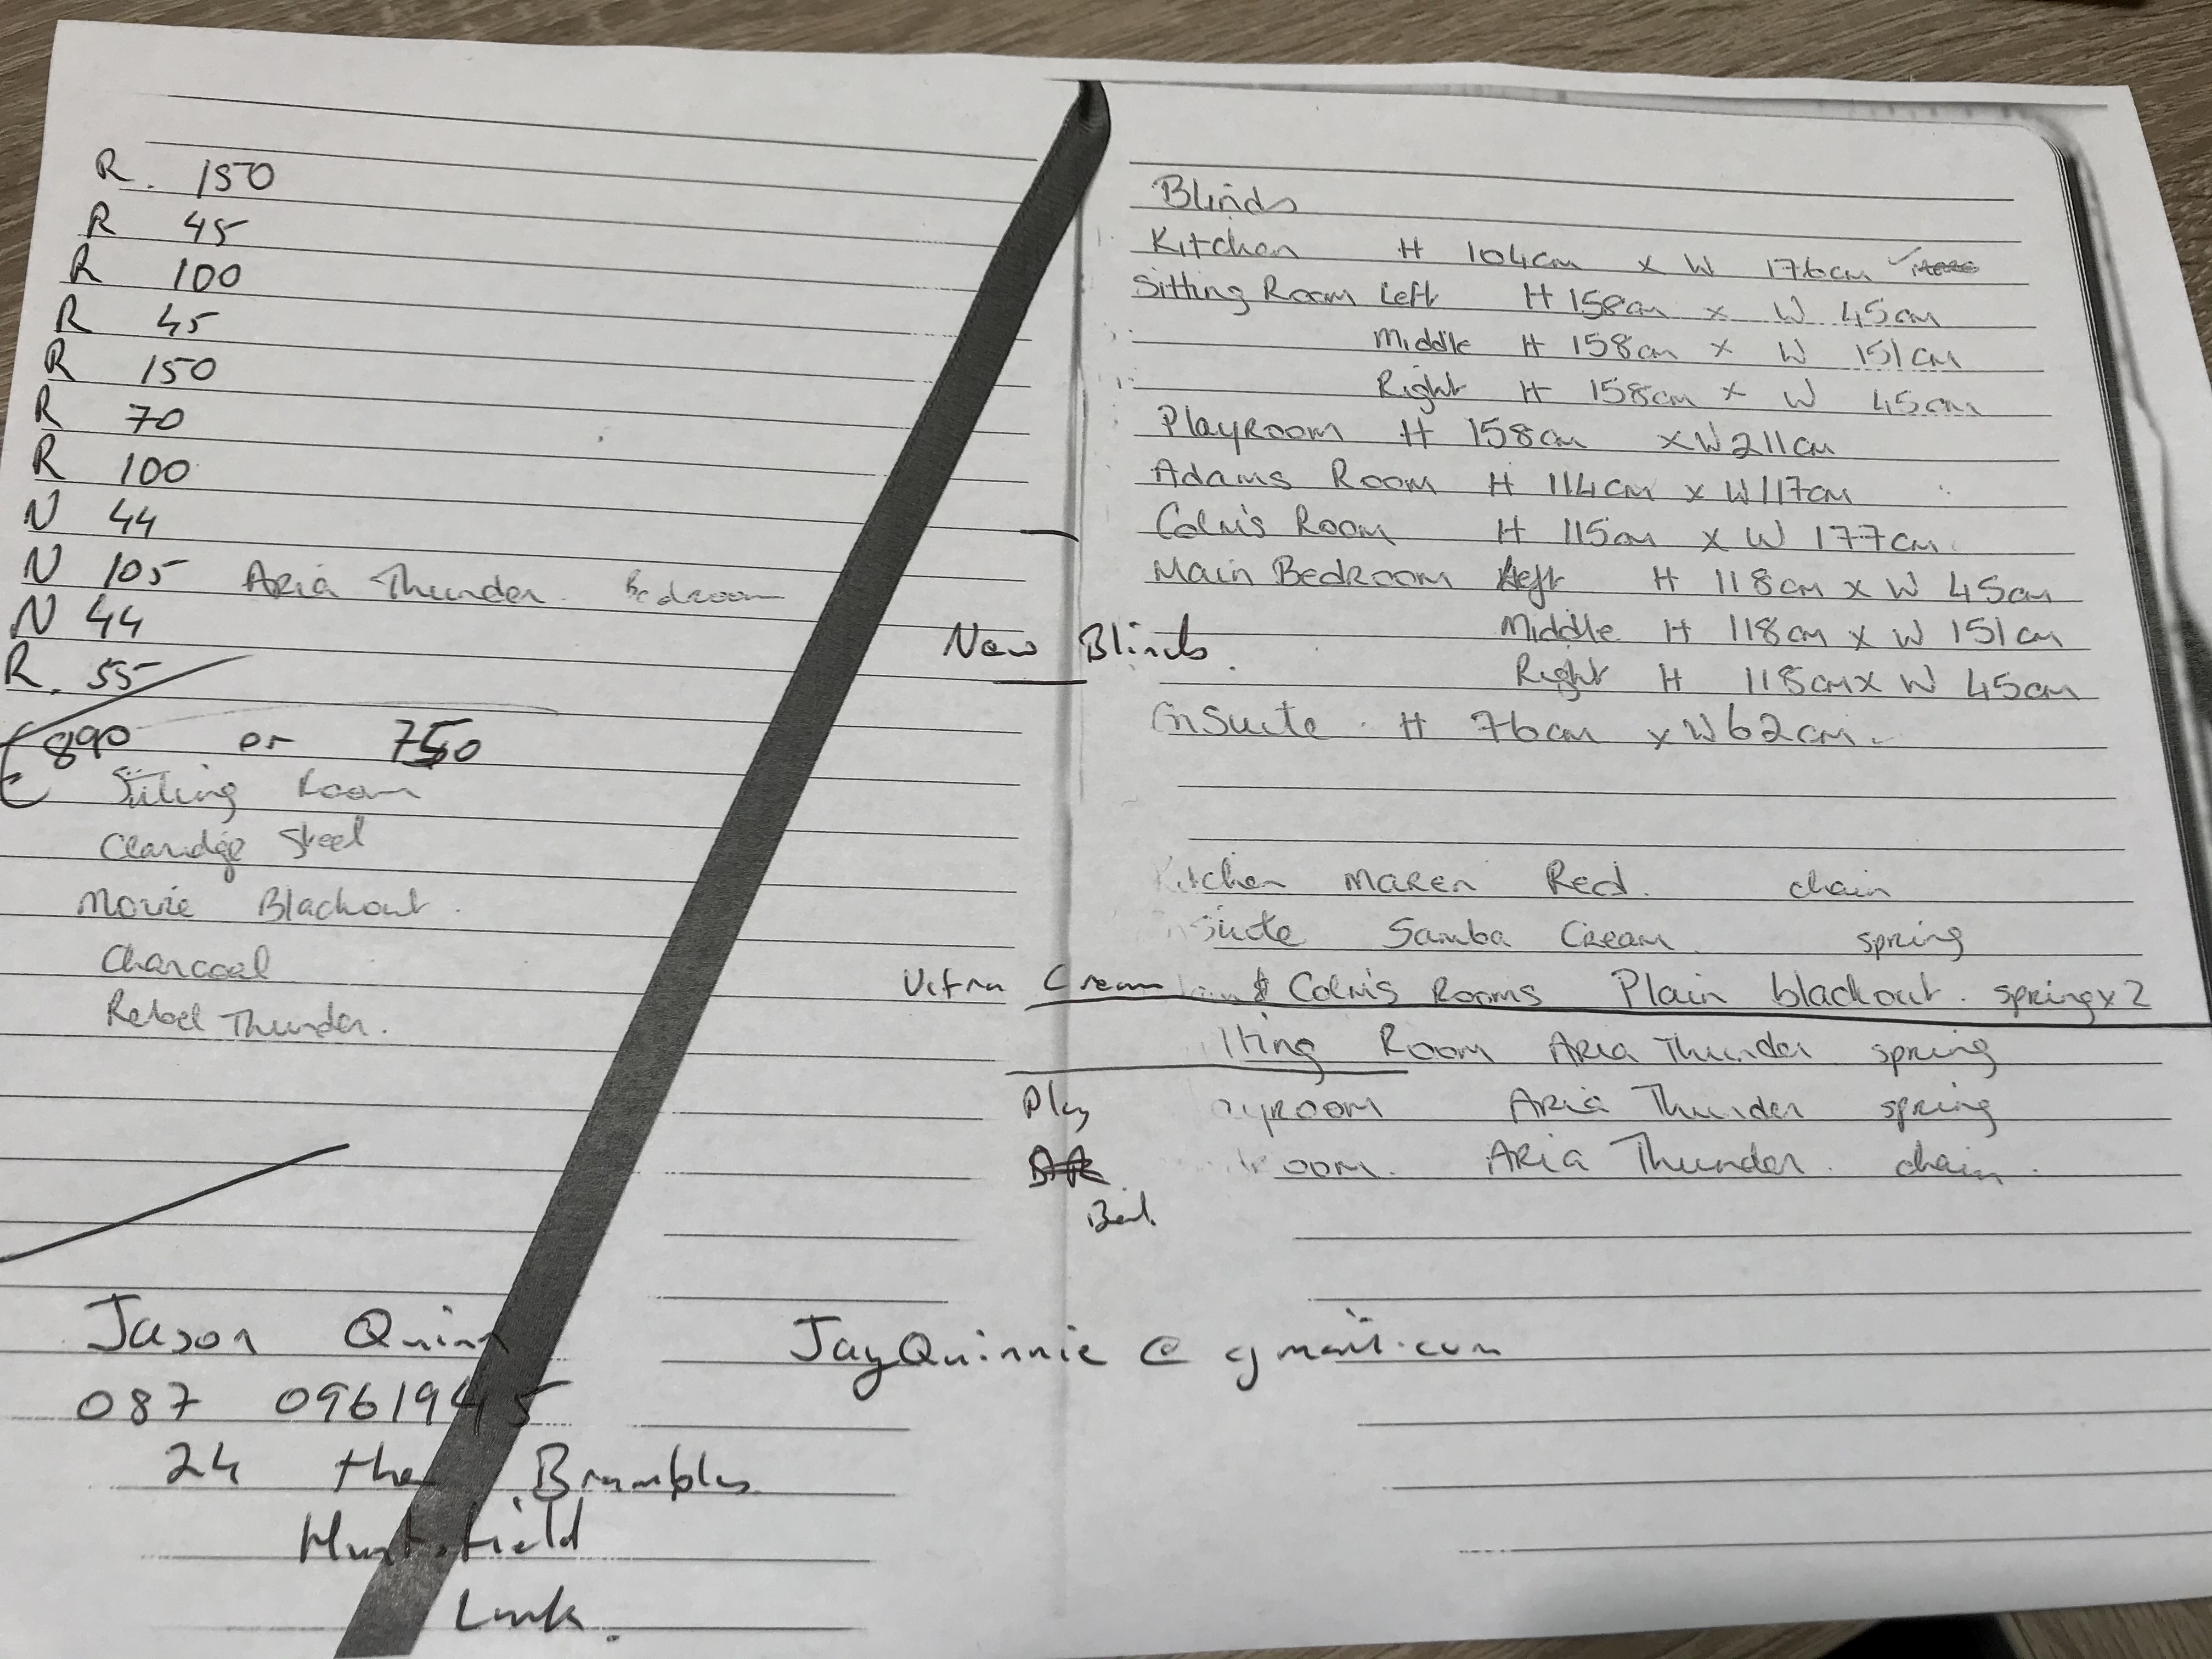 R. 150
R 45
R 100
R 45
R 150
R 70
R 100
N 44
N 105 Aria Thunder. Bedroom
N 44
R. 55
890 or 750
Sitting Room
Claridge Steel
Movie Blackout.
Charcoal
Rebel Thunder.
Jason Quinn
087 0961945
24 the Brambles
Huntsfield
JayQuinnie @ gmail.com
Blinds
Kitchen H 104cm x W 176cm
Sitting Room Left H 158cm x W 45cm
Middle H 158cm x W 151cm
Right H 158cm x W 45cm
Playroom H 158cm x W 211cm
Adams Room H 114cm x W 117cm
Colm's Room H 115cm x W 177cm.
Main Bedroom Left H 118cm x W 45cm
Middle H 118cm x W 151cm
New Blinds.
Right H 118cm x W 45cm
EnSuite H 76cm x W 62cm.
itchen Maren Red. chain
nsuite Samba Cream. spring
Cream & Colm's Rooms Plain blackout. spring x 2
itting Room Aria Thunder spring
Play ayroom Aria Thunder spring
room. Aria Thunder. chain.
Bed.